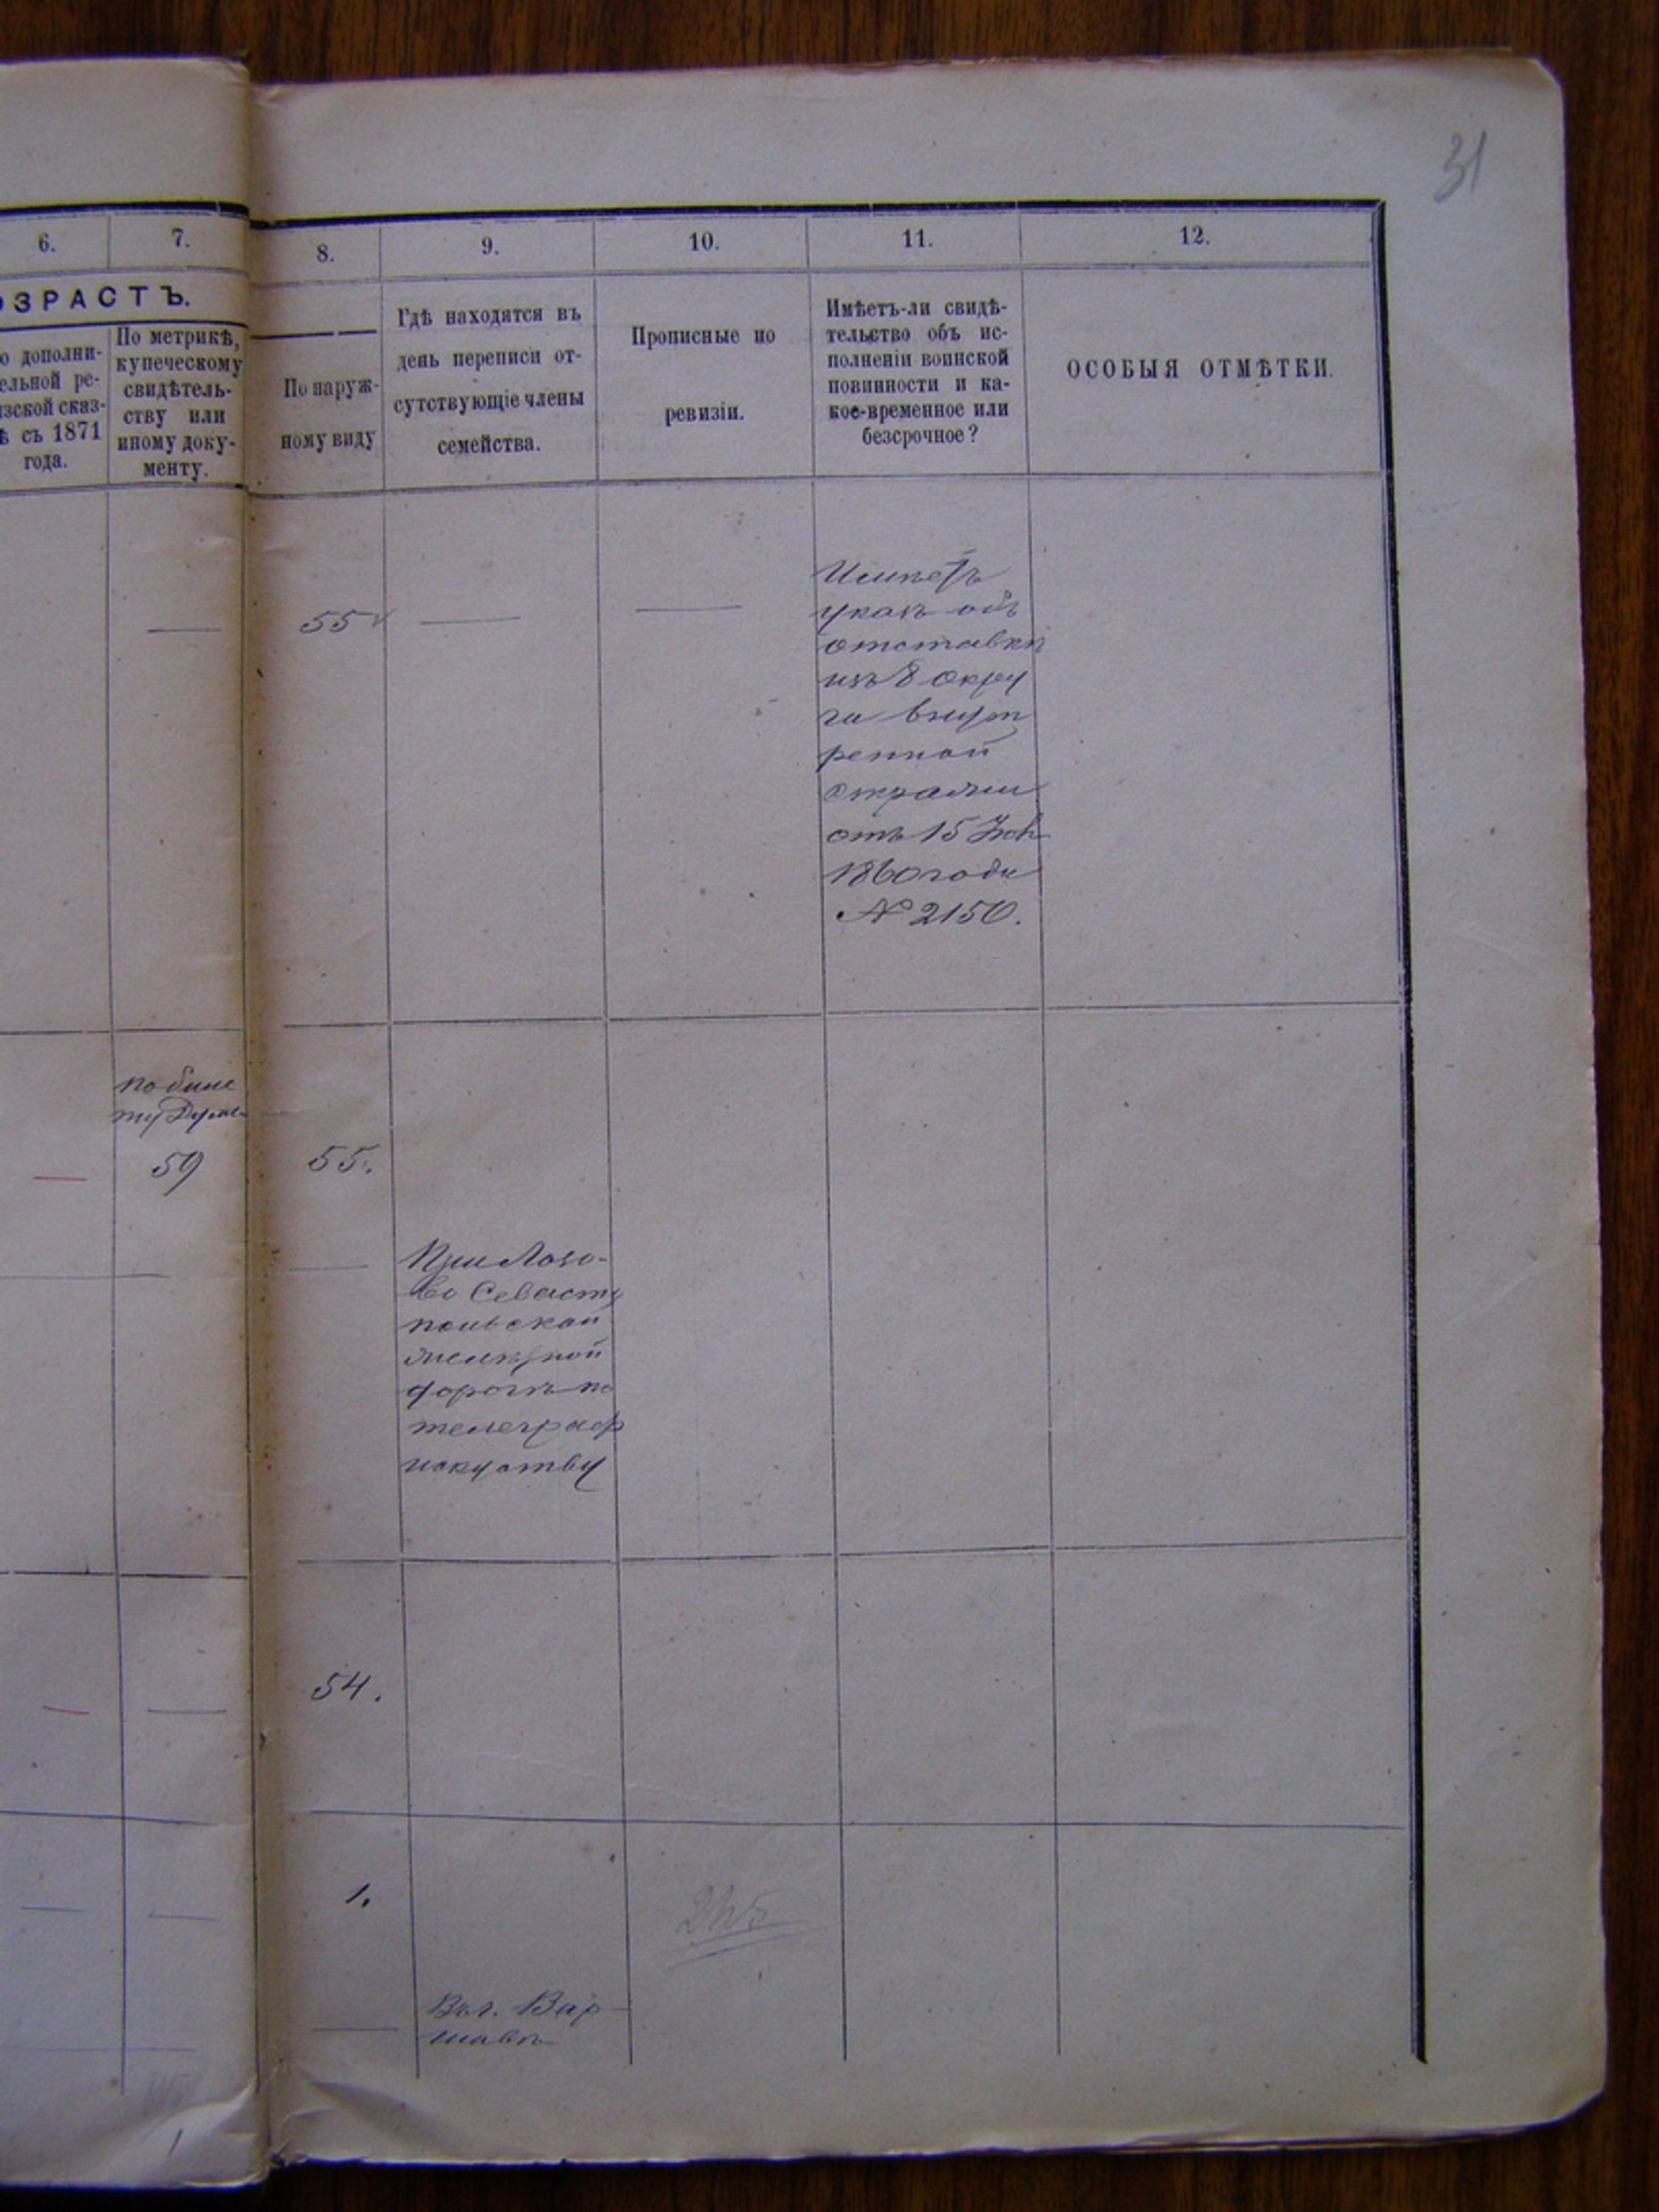 31
6.
7.
8.
9.
10.
11.
12.
ОЗРАСТЪ.
о дополни-
ельной ре-
изской сказ-
ѣ съ 1871
года.
По метрикѣ,
купеческому
свидѣтель-
ству или
иному доку-
менту.
По наруж-
ному виду
Гдѣ находятся въ
день переписи от-
сутствующіе члены
семейства.
Прописные по
ревизіи.
Имѣетъ-ли свидѣ-
тельство объ ис-
полненіи воинской
повинности и ка-
кое-временное или
безсрочное?
ОСОБЫЯ ОТМѢТКИ.
55
Имѣетъ
указъ объ
отставкѣ
изъ 8 окру
га внут
ренной
стражи
отъ 15
1860 года
№ 2150.
по биле
ту
59
55.
При Лозо-
во Севасто
польской
желѣзной
дорогѣ по
телеграф
искуству
54.
1.
Въ г. Вар-
шавѣ